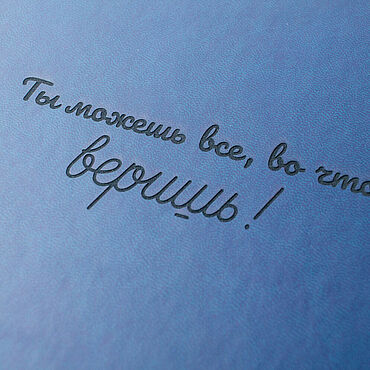 Ты можешь все, во что
веришь!